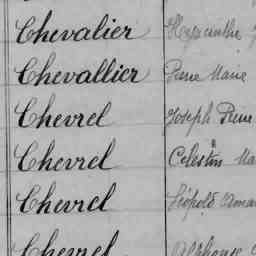 Chevalier Hyacinthe
Chevallier Pierre Marie
Chevrel Joseph Pierre
Chevrel Célestin Ma
Chevrel Léopold Amand
Chevrel Alphonse